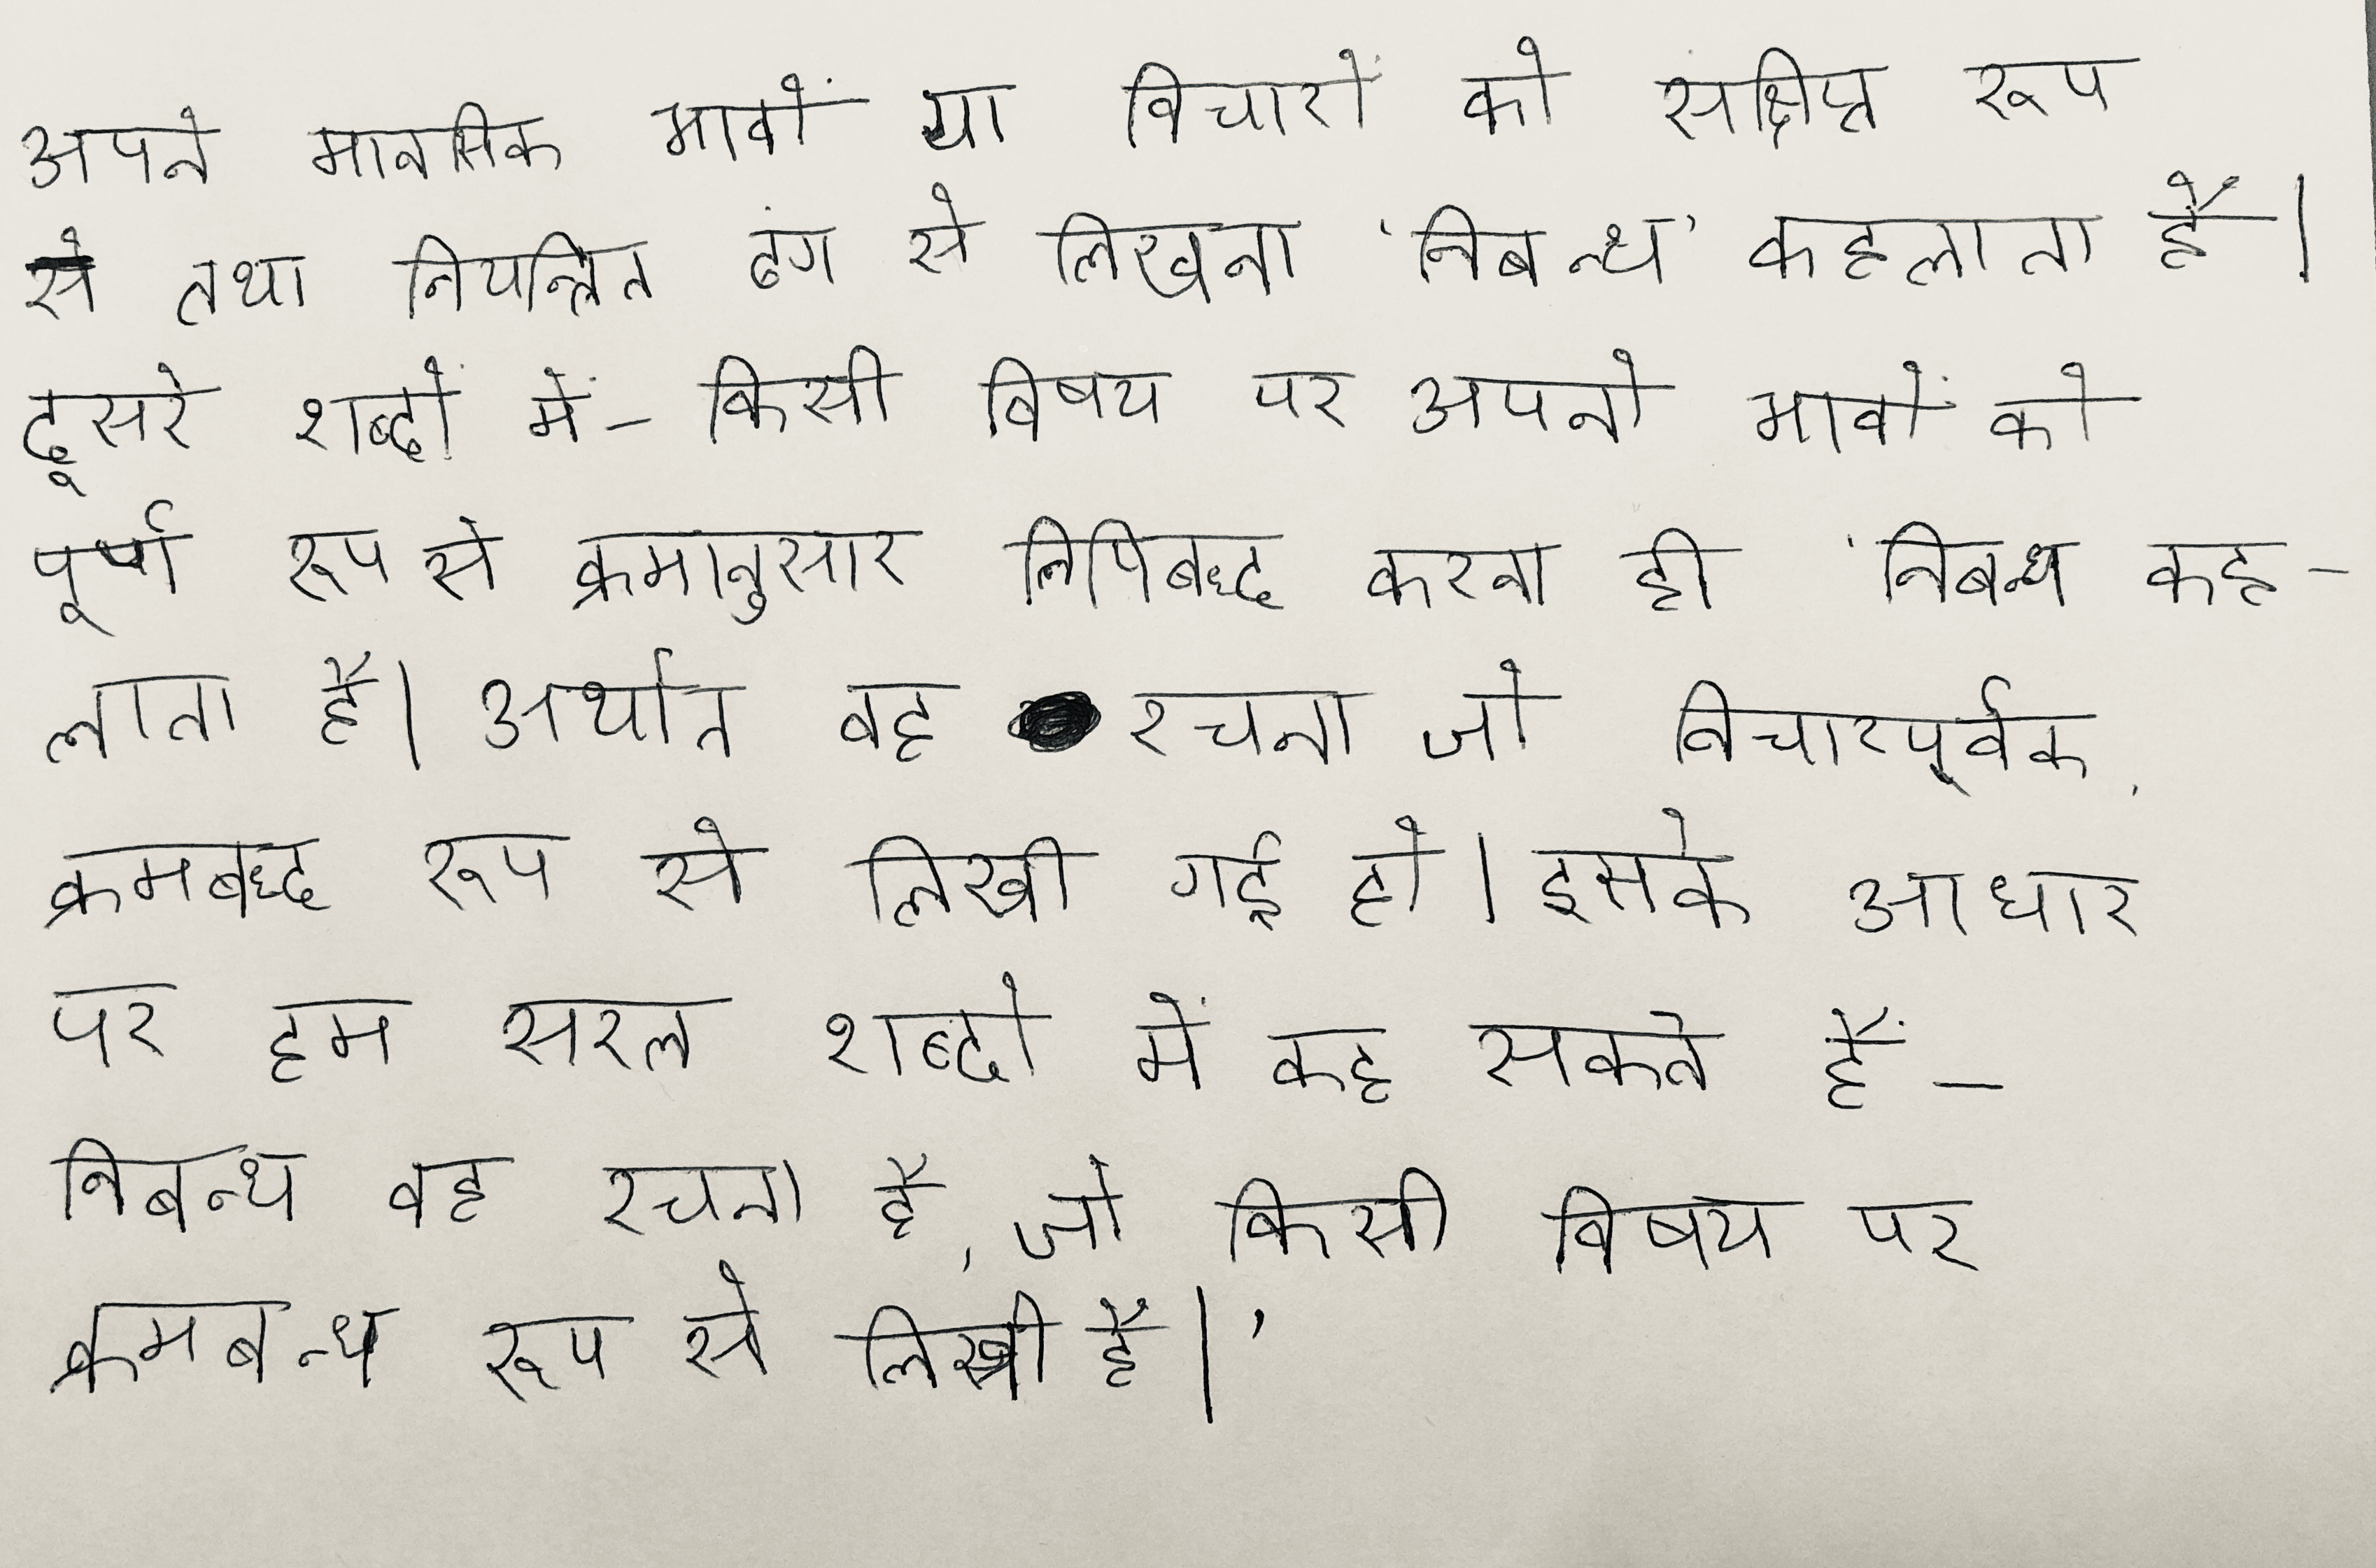 अपने मानसिक भावों या विचारों को संक्षिप्त रूप
से तथा नियन्त्रित ढंग से लिखना 'निबन्ध' कहलाता है।
दूसरे शब्दों में- किसी विषय पर अपनो भावों को
पूर्ण रूप से क्रमानुसार लिपिबद्ध करना ही 'निबन्ध कह-
लाता है। अर्थात वह रचना जो विचारपूर्वक,
क्रमबद्ध रूप से लिखी गई हो। इसके आधार
पर हम सरल शब्दो में कह सकते हैं-
निबन्ध वह रचना है, जो किसी विषय पर
क्रमबन्ध रूप से लिखी है।'